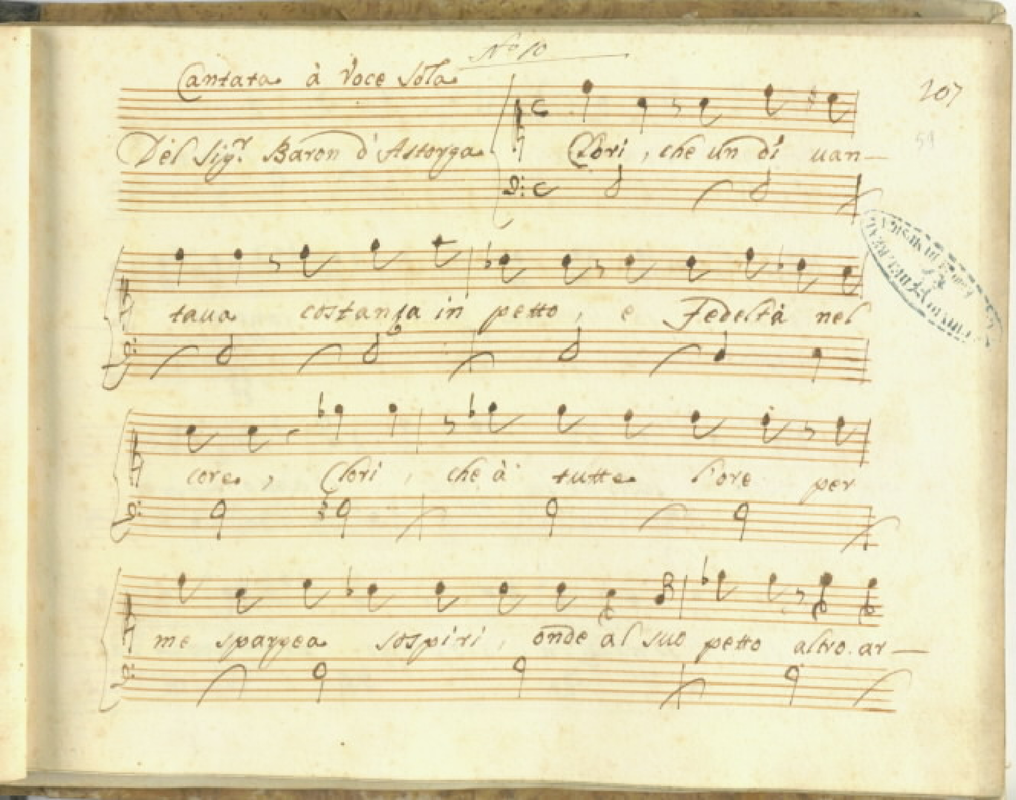 Nº 10
Cantata à Voce Sola
207
59
Del Sigr. Baron d'Astorga
Clori, che un dì uan-
taua costanza in petto, e Fedeltà nel
core, Clori, che à tutte l'ore per
me spargea sospiri, onde al suo petto altro ar-